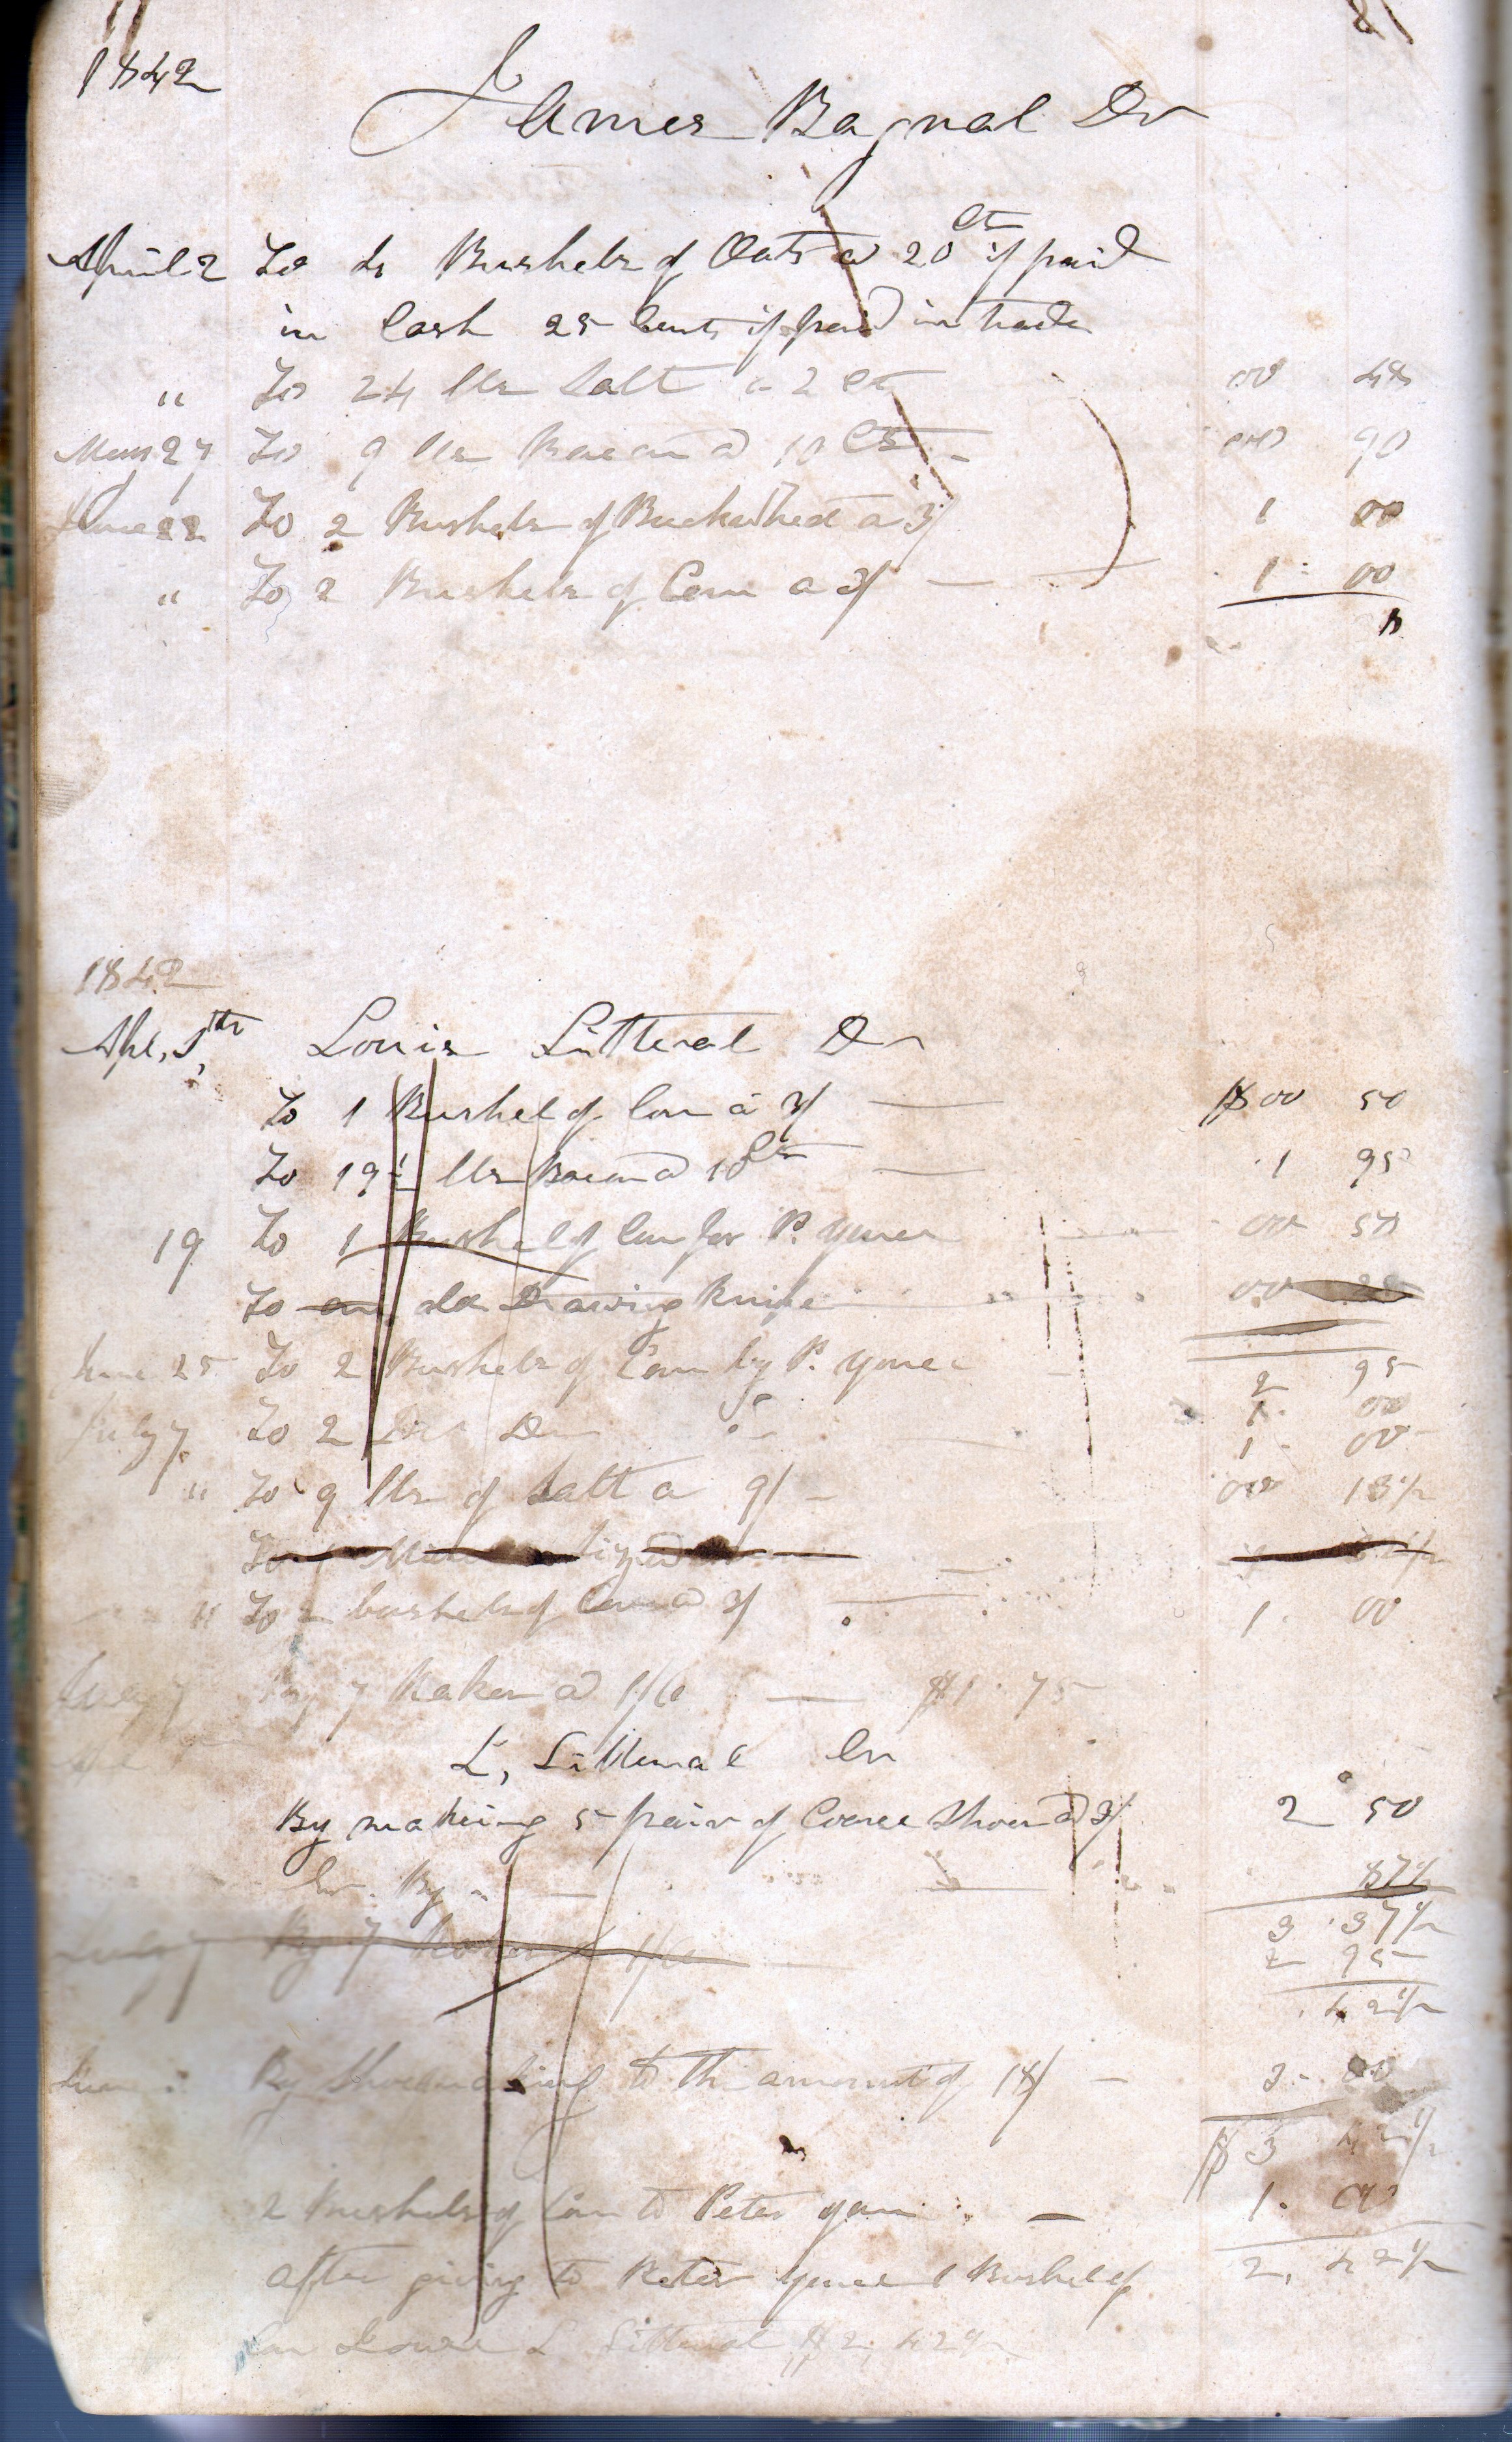 1842
James Bagnal Dr
April 2 To 4 Bushels of Oats a 20 Cts if paid
in Cash 25 Cents if paid in trade
" To 24 lbs Salt a 2 Cts 00 48
27 To 9 lbs Bacon a 10 Cts 00 90
June 22 To 2 Bushels of Buckwheat a 3/ 1 00
" To 2 Bushels of Corn a 3/ — 1 00
1842
Apl, 5th Louis Litteral Dr
To 1 Bushel of Corn a 3/ — $00 50
To 19½ lbs Bacon a 10 Cts — 1 95
19 To 1 Bushel of Corn for P. Younce 00 50
To an old Drawing knife 00
2 95
June 25 To 2 Bushels of Corn by P. Younce 1. 00
July 7. To 2 Do Do 1. 00
" To 9 lbs of Salt a 9/ — 00 13½
" To 2 bushels of Corn a 3/ 1. 00
July 7 By 7 Rakes a 1/6 — $1.75
L, Litteral Cr
By making 5 pair of Coarse Shoes a 3/ 2 50
Cr. By " — 87½
3.37½
July 7 By 7 Rakes a 1/6 2 95
.42½
June By Shoemaking to the amount of 18/ — 3.00
$3 42½
2 Bushels of Corn to Peter Younce — 1. 00
after giving to Peter Younce 1 Bushel of 2, 42½
Corn I owe L Litteral $2,42½